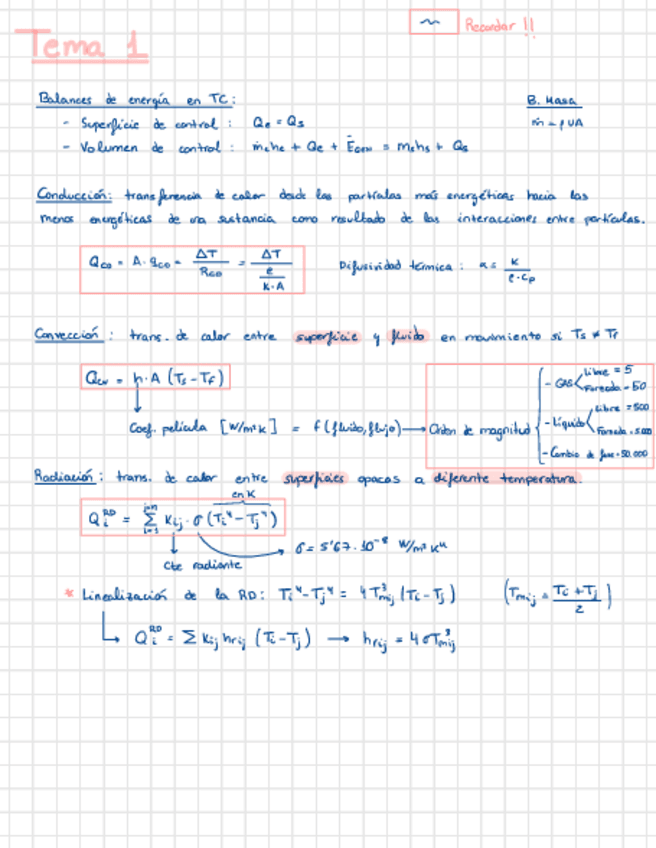 Recordar !!
Tema 1
Balances de energía en TC:
B. Masa
- Superficie de control: Qe = Qs
ṁ = ρUA
- Volumen de control: ṁehe + Qe + Ėgen = ṁshs + Qs
Conducción: transferencia de calor desde las partículas más energéticas hacia las
menos energéticas de una sustancia como resultado de las interacciones entre partículas.
Qco = A·qco = ΔT/Rco = ΔT/(e/(K·A))
Difusividad térmica: α = K/(ρ·cp)
Convección: trans. de calor entre superficie y fluido en movimiento si Ts ≠ Tf
Qcv = h·A (Ts - Tf)
Coef. película [W/m²K] = f(fluido, flujo) → Orden de magnitud
- GAS Libre = 5
Forzada = 50
- Líquido Libre = 500
Forzada = 5.000
- Cambio de fase = 50.000
Radiación: trans. de calor entre superficies opacas a diferente temperatura.
en K
Qi^RD = Σ Kij · σ (Ti⁴ - Tj⁴)
σ = 5'67·10⁻⁸ W/m²K⁴
Cte radiante
* Linealización de la RD: Ti⁴ - Tj⁴ = 4T³mij (Ti - Tj) (Tmij = (Ti + Tj)/2)
Qi^RD = Σ Kij hrij (Ti - Tj) → hrij = 4σT³mij